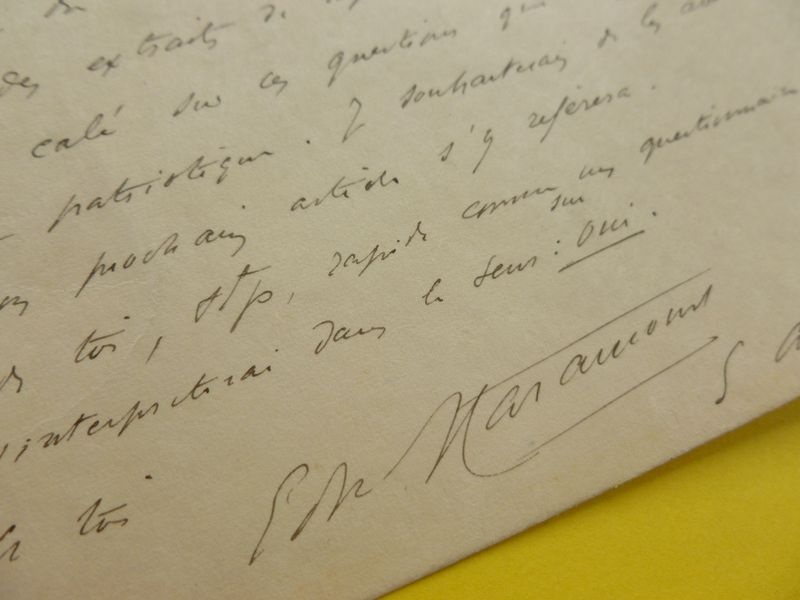 des extraits de
calé sur ces questions que
patriotique. Je souhaiterais de les
prochain article s'y référera.
de toi, stp, rapide comme un questionnaire
sur
interpréterai dans le sens : oui.
toi
Edm Haraucourt
5